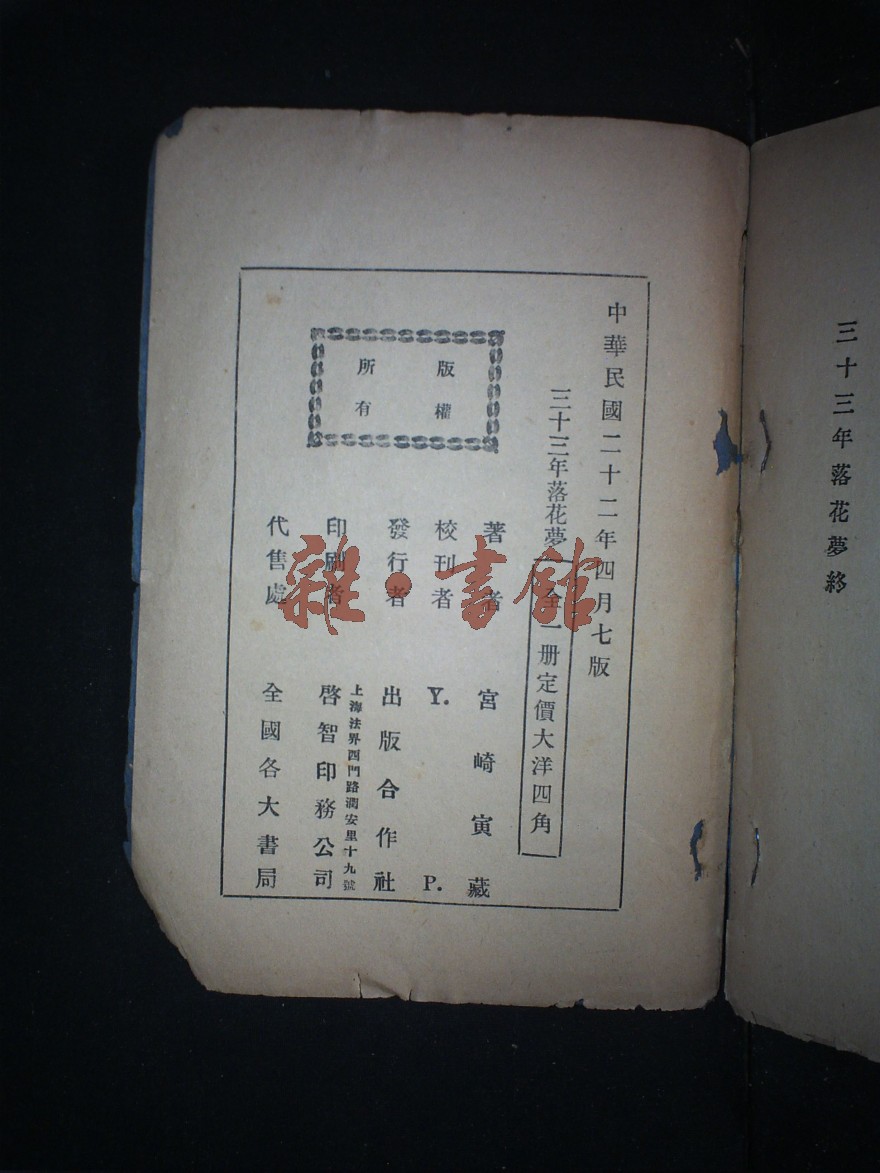 三十三年落花夢終
中華民國二十二年四月七版
三十三年落花夢
全一册定價大洋四角
版權
所有
著者 宮崎寅藏
校刊者 Y. P.
發行者 出版合作社
上海法界西門路潤安里十九號
印刷者 啓智印務公司
代售處 全國各大書局
雜·書館